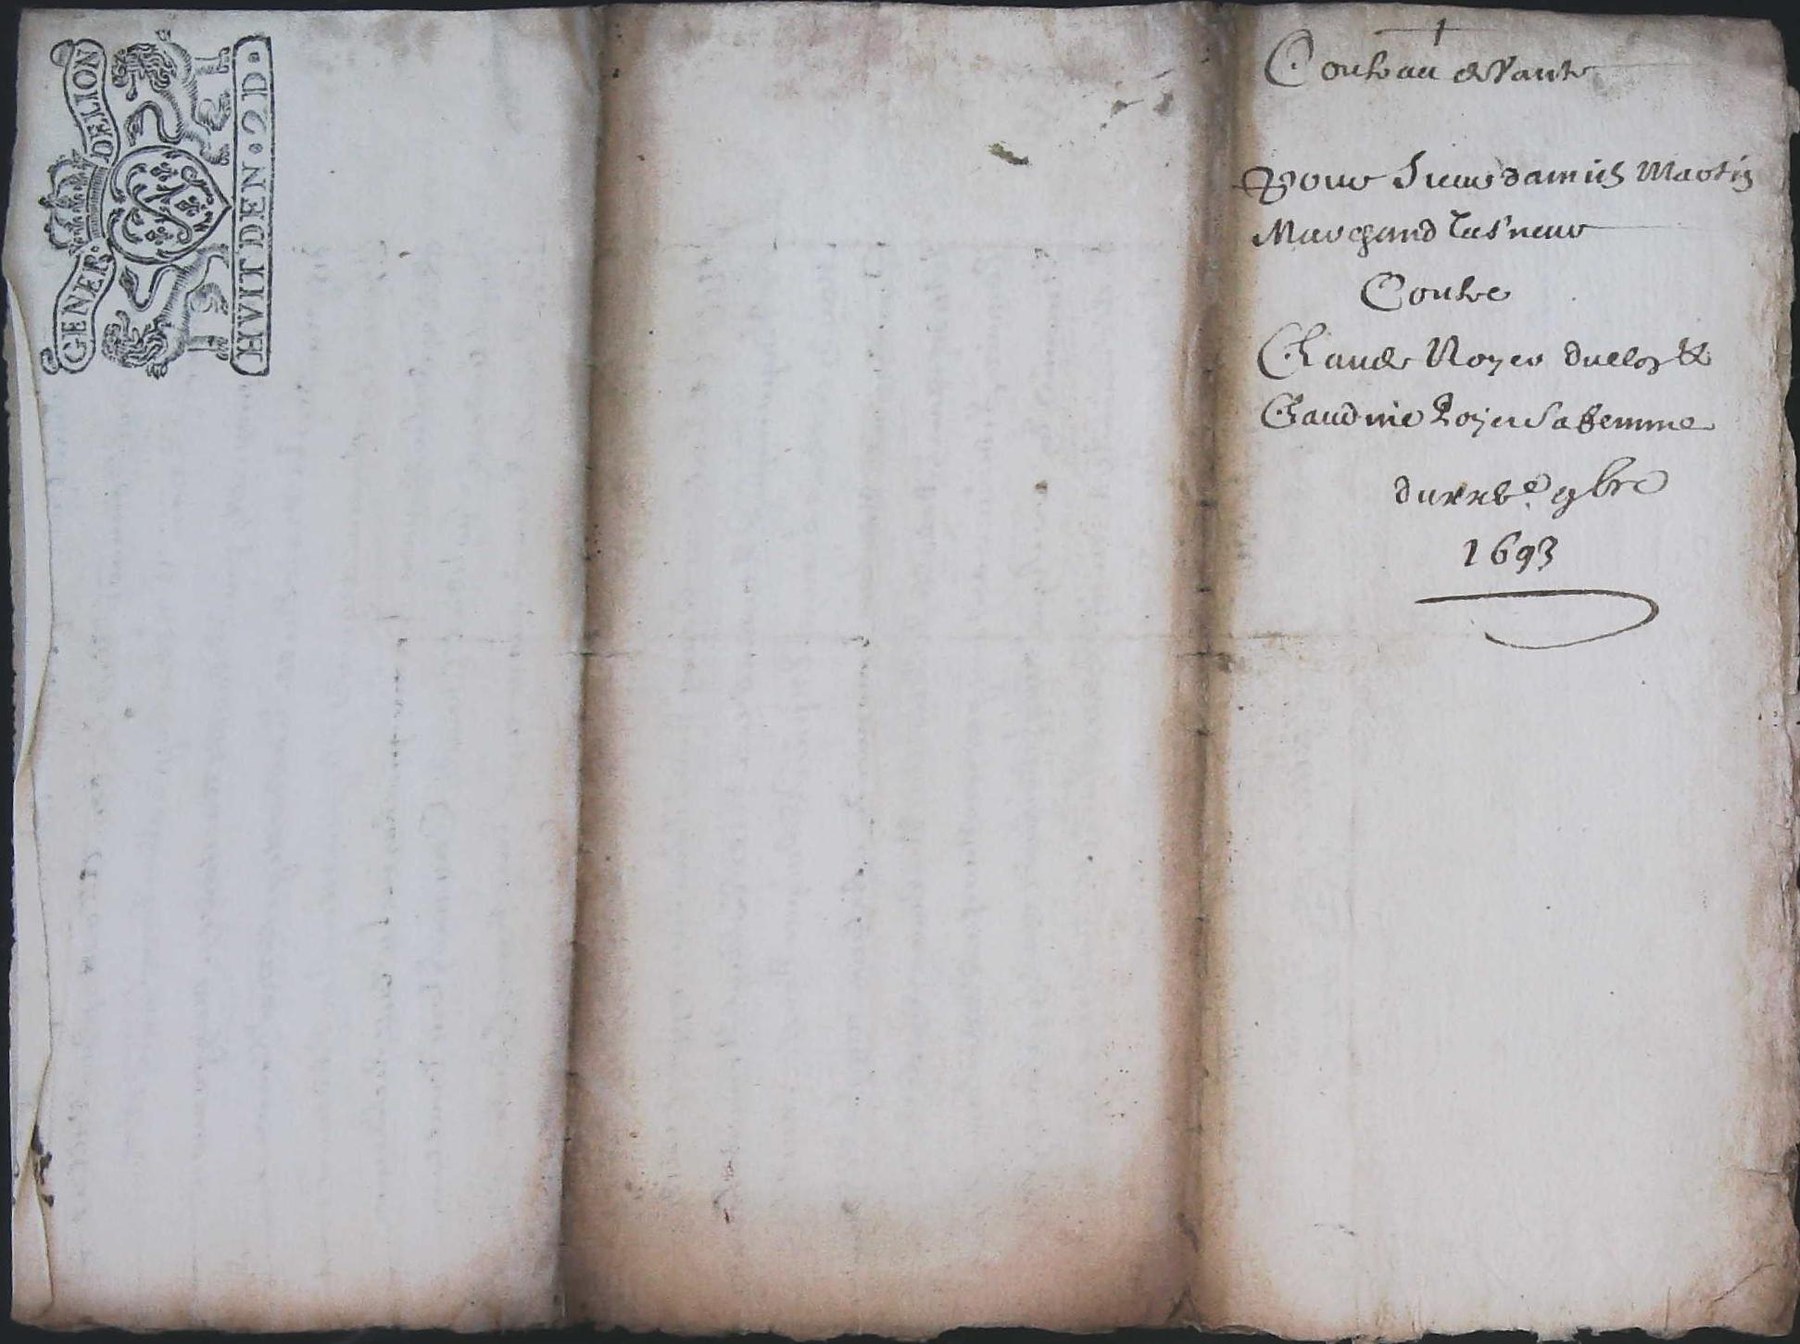 GENER. DE LION
HVIT DEN. 2 D.
Contrau de Vante
Pour Sieur damien Martin
Marchand
Contre
Claude Noyer
Claudine Royer Sa femme
du xxve 9bre
1693